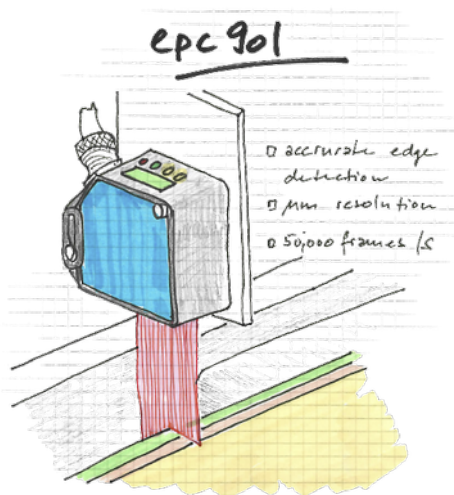 epc 901
▫ accurate edge
detection
▫ µm resolution
▫ 50,000 frames /s